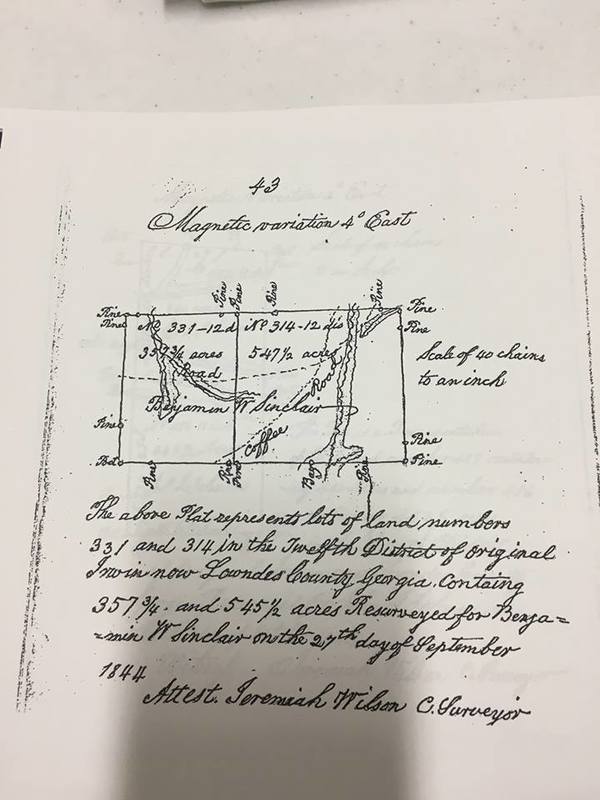 43
Magnetic variation 4° East
Pine Pine Pine Pine Pine
Pine Pine
Pine
No 331-12 d No 314-12 dis
357 3/4 acres 547 1/2 acres
Road Road
Scale of 40 chains
to an inch
Benjamin W Sinclair
Coffee
Pine
Pine
Pine
Pine Pine Bay Pine
The above Plat represents lots of land, numbers
331 and 314 in the Twelfth District of original
Irwin now Lowndes County, Georgia, Containg
357 3/4. and 545 1/2 acres Resurveyed for Benja=
=min W Sinclair on the 27th day of September
1844
Attest. Jeremiah Wilson C. Surveyor